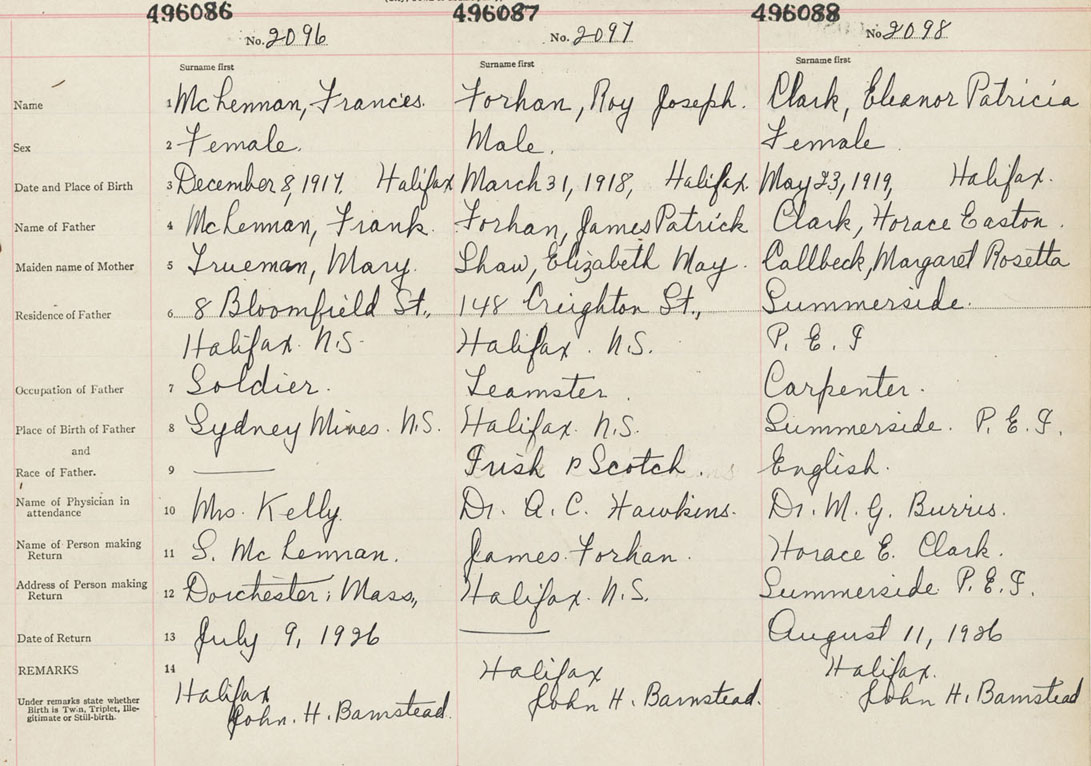 496086 496087 496088
No. 2096 No. 2097 No. 2098
Surname first Surname first Surname first
Name 1 McLennan, Frances. Forhan, Roy Joseph. Clark, Eleanor Patricia
Sex 2 Female. Male. Female
Date and Place of Birth 3 December 8, 1917. Halifax March 31, 1918, Halifax. May 23, 1919, Halifax.
Name of Father 4 McLennan, Frank. Forhan, James Patrick Clark, Horace Easton.
Maiden name of Mother 5 Trueman, Mary. Shaw, Elizabeth May. Callbeck, Margaret Rosetta
Residence of Father 6 8 Bloomfield St., 148 Creighton St., Summerside.
Halifax. N.S. Halifax. N.S. P. E. I
Occupation of Father 7 Soldier. Teamster. Carpenter.
Place of Birth of Father 8 Sydney Mines. N.S. Halifax. N.S. Summerside. P. E. I.
and
Race of Father. 9 Irish & Scotch. English.
Name of Physician in
attendance 10 Mrs. Kelly. Dr. A. C. Hawkins. Dr. M. G. Burris.
Name of Person making
Return 11 S. McLennan. James Forhan. Horace E. Clark.
Address of Person making
Return 12 Dorchester, Mass., Halifax. N.S. Summerside P.E.I.
Date of Return 13 July 9, 1926 August 11, 1926
REMARKS 14 Halifax Halifax Halifax.
Under remarks state whether
Birth is Twin, Triplet, Ille-
gitimate or Still-birth.
John. H. Barnstead. John H. Barnstead. John H. Barnstead